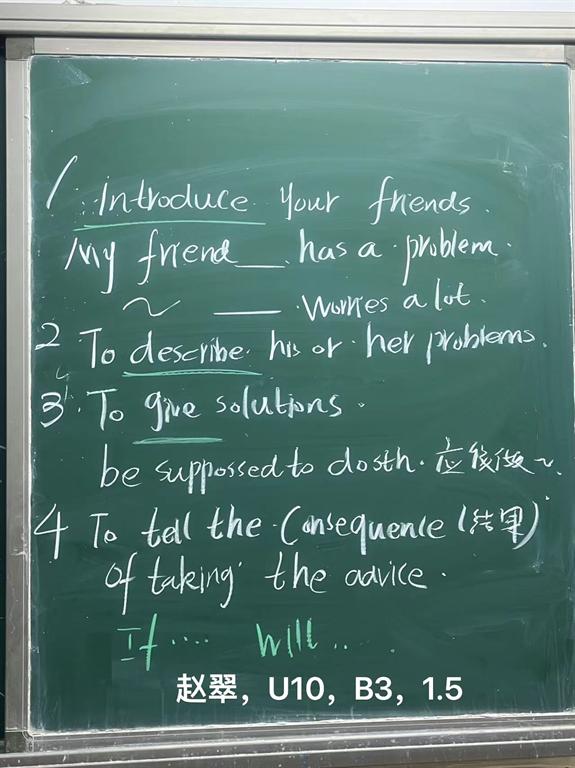 1 Introduce your friends.
My friend ___ has a problem.
~ ___ worries a lot.
2 To describe his or her problems.
3. To give solutions.
be suppossed to do sth. 应该做~.
4 To tell the Consequence (结果)
Of taking the advice.
If .... will .....
赵翠，U10，B3，1.5